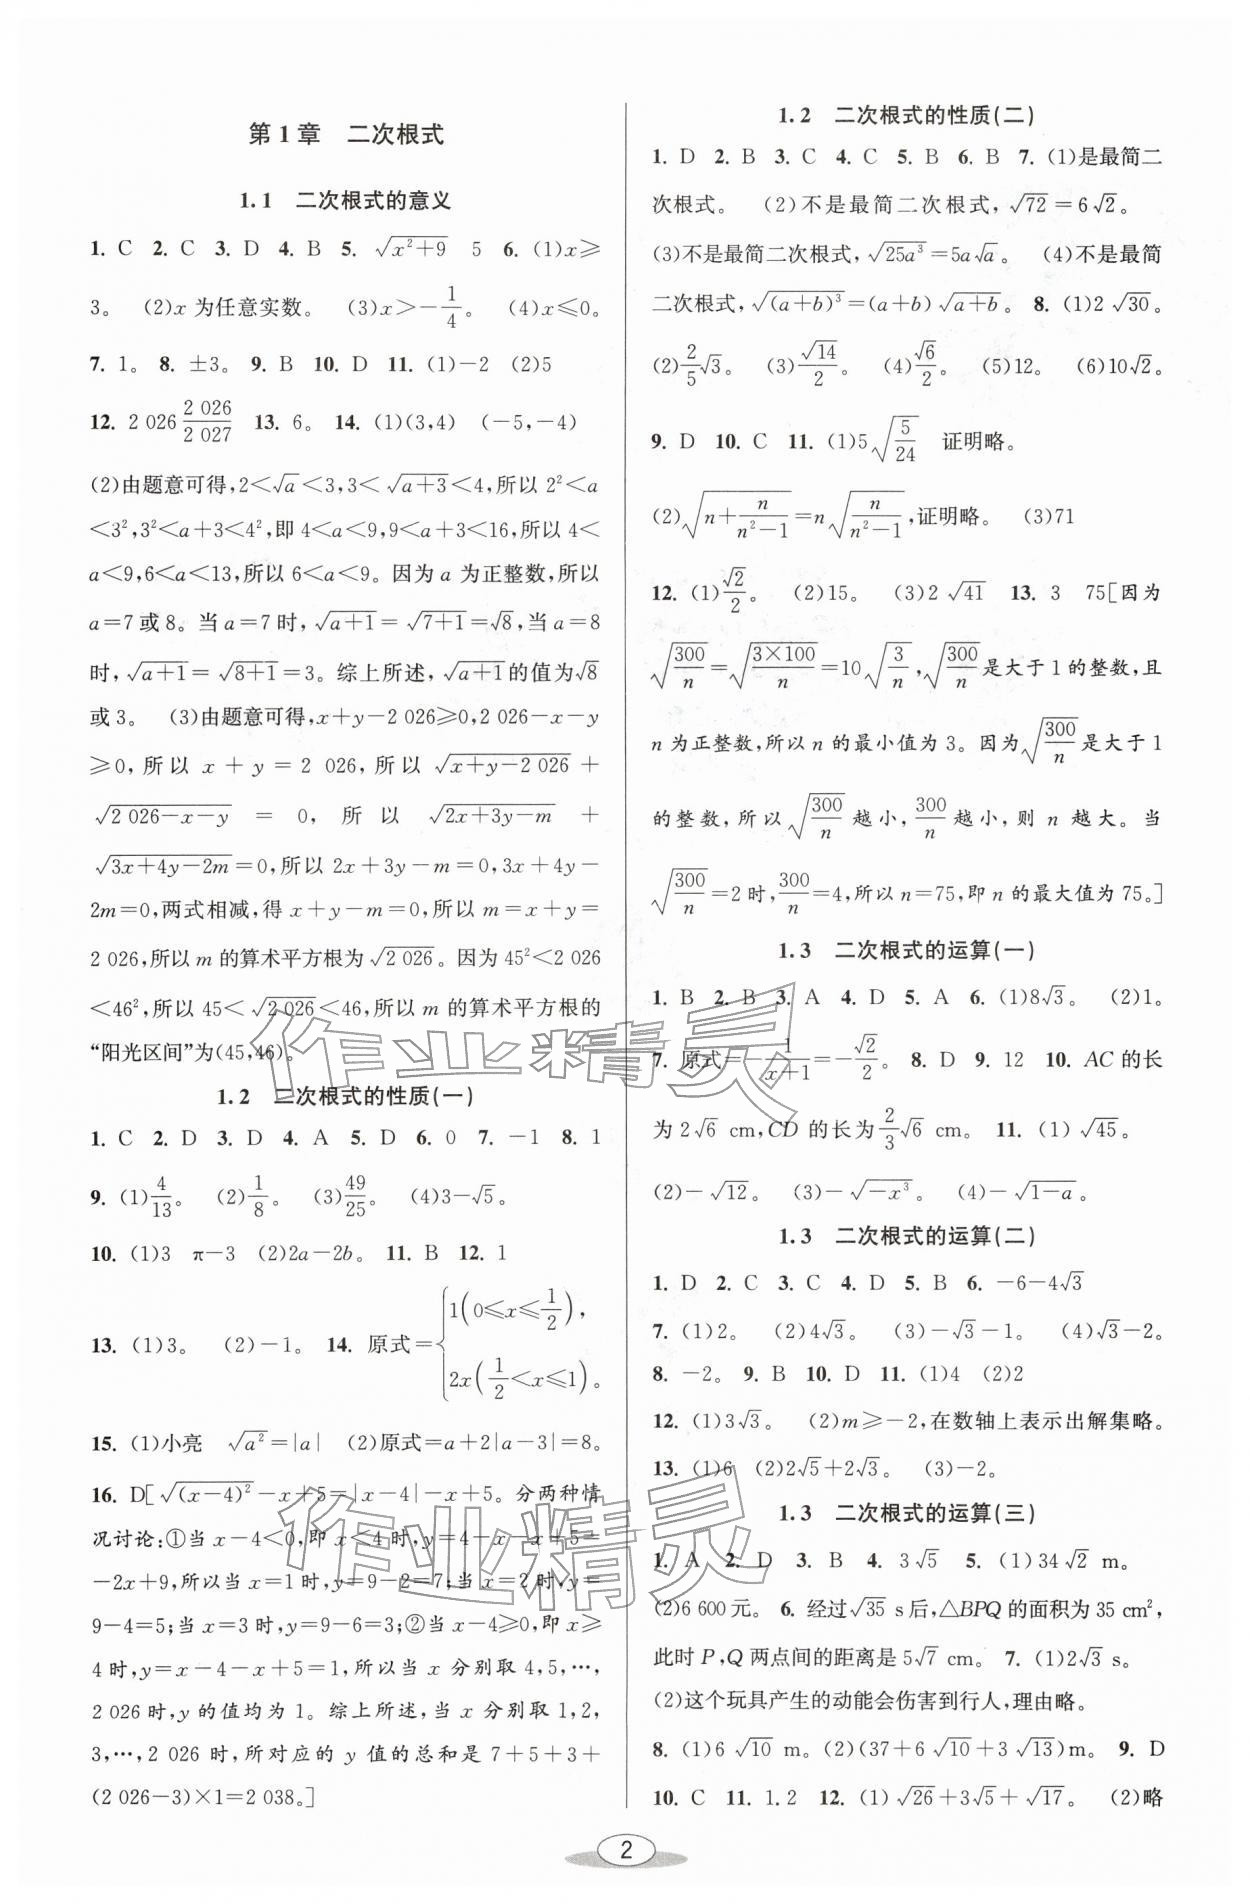 第1章 二次根式
1.1 二次根式的意义
1. C 2. C 3. D 4. B 5. √(x²+9) 5 6. (1)x≥
3。 (2)x 为任意实数。 (3)x>-1/4。 (4)x≤0。
7. 1。 8. ±3。 9. B 10. D 11. (1)-2 (2)5
12. 2 026 2 026/2 027 13. 6。 14. (1)(3,4) (-5,-4)
(2)由题意可得,2<√a<3,3<√(a+3)<4,所以 2²<a
<3²,3²<a+3<4²,即 4<a<9,9<a+3<16,所以 4<
a<9,6<a<13,所以 6<a<9。因为 a 为正整数,所以
a=7 或 8。当 a=7 时,√(a+1)=√(7+1)=√8,当 a=8
时,√(a+1)=√(8+1)=3。综上所述,√(a+1)的值为√8
或 3。 (3)由题意可得,x+y-2 026≥0,2 026-x-y
≥0,所以 x+y=2 026,所以√(x+y-2 026)+
√(2 026-x-y)=0,所以√(2x+3y-m)+
√(3x+4y-2m)=0,所以 2x+3y-m=0,3x+4y-
2m=0,两式相减,得 x+y-m=0,所以 m=x+y=
2 026,所以 m 的算术平方根为√(2 026)。因为 45²<2 026
<46²,所以 45<√(2 026)<46,所以 m 的算术平方根的
“阳光区间”为(45,46)。
1.2 二次根式的性质(一)
1. C 2. D 3. D 4. A 5. D 6. 0 7. -1 8. 1
9. (1)4/13。 (2)1/8。 (3)49/25。 (4)3-√5。
10. (1)3 π-3 (2)2a-2b。 11. B 12. 1
13. (1)3。 (2)-1。 14. 原式={1(0≤x≤1/2),
2x(1/2<x≤1)。
15. (1)小亮 √(a²)=|a| (2)原式=a+2|a-3|=8。
16. D[√((x-4)²)-x+5=|x-4|-x+5。分两种情
况讨论:①当 x-4<0,即 x<4 时,y=4-x-x+5=
-2x+9,所以当 x=1 时,y=9-2=7;当 x=2 时,y=
9-4=5;当 x=3 时,y=9-6=3;②当 x-4≥0,即 x≥
4 时,y=x-4-x+5=1,所以当 x 分别取 4,5,…,
2 026 时,y 的值均为 1。综上所述,当 x 分别取 1,2,
3,…,2 026 时,所对应的 y 值的总和是 7+5+3+
(2 026-3)×1=2 038。]
1.2 二次根式的性质(二)
1. D 2. B 3. C 4. C 5. B 6. B 7. (1)是最简二
次根式。 (2)不是最简二次根式,√72=6√2。
(3)不是最简二次根式,√(25a³)=5a√a。 (4)不是最简
二次根式,√((a+b)³)=(a+b)√(a+b)。 8. (1)2√30。
(2)2/5√3。 (3)√14/2。 (4)√6/2。 (5)12。 (6)10√2。
9. D 10. C 11. (1)5√(5/24) 证明略。
(2)√(n+n/(n²-1))=n√(n/(n²-1)),证明略。 (3)71
12. (1)√2/2。 (2)15。 (3)2√41 13. 3 75[因为
√(300/n)=√(3×100/n)=10√(3/n),√(300/n)是大于 1 的整数,且
n 为正整数,所以 n 的最小值为 3。因为√(300/n)是大于 1
的整数,所以√(300/n)越小,300/n越小,则 n 越大。当
√(300/n)=2 时,300/n=4,所以 n=75,即 n 的最大值为 75。]
1.3 二次根式的运算(一)
1. B 2. B 3. A 4. D 5. A 6. (1)8√3。 (2)1。
7. 原式=-1/(x+1)=-√2/2。 8. D 9. 12 10. AC 的长
为 2√6 cm,CD 的长为2/3√6 cm。 11. (1)√45。
(2)-√12。 (3)-√(-x³)。 (4)-√(1-a)。
1.3 二次根式的运算(二)
1. D 2. C 3. C 4. D 5. B 6. -6-4√3
7. (1)2。 (2)4√3。 (3)-√3-1。 (4)√3-2。
8. -2。 9. B 10. D 11. (1)4 (2)2
12. (1)3√3。 (2)m≥-2,在数轴上表示出解集略。
13. (1)6 (2)2√5+2√3。 (3)-2。
1.3 二次根式的运算(三)
1. A 2. D 3. B 4. 3√5 5. (1)34√2 m。
(2)6 600元。 6. 经过√35 s后,△BPQ的面积为 35 cm²,
此时 P,Q 两点间的距离是 5√7 cm。 7. (1)2√3 s。
(2)这个玩具产生的动能会伤害到行人,理由略。
8. (1)6√10 m。(2)(37+6√10+3√13)m。 9. D
10. C 11. 1.2 12. (1)√26+3√5+√17。 (2)略
2
作业精灵
作业精灵